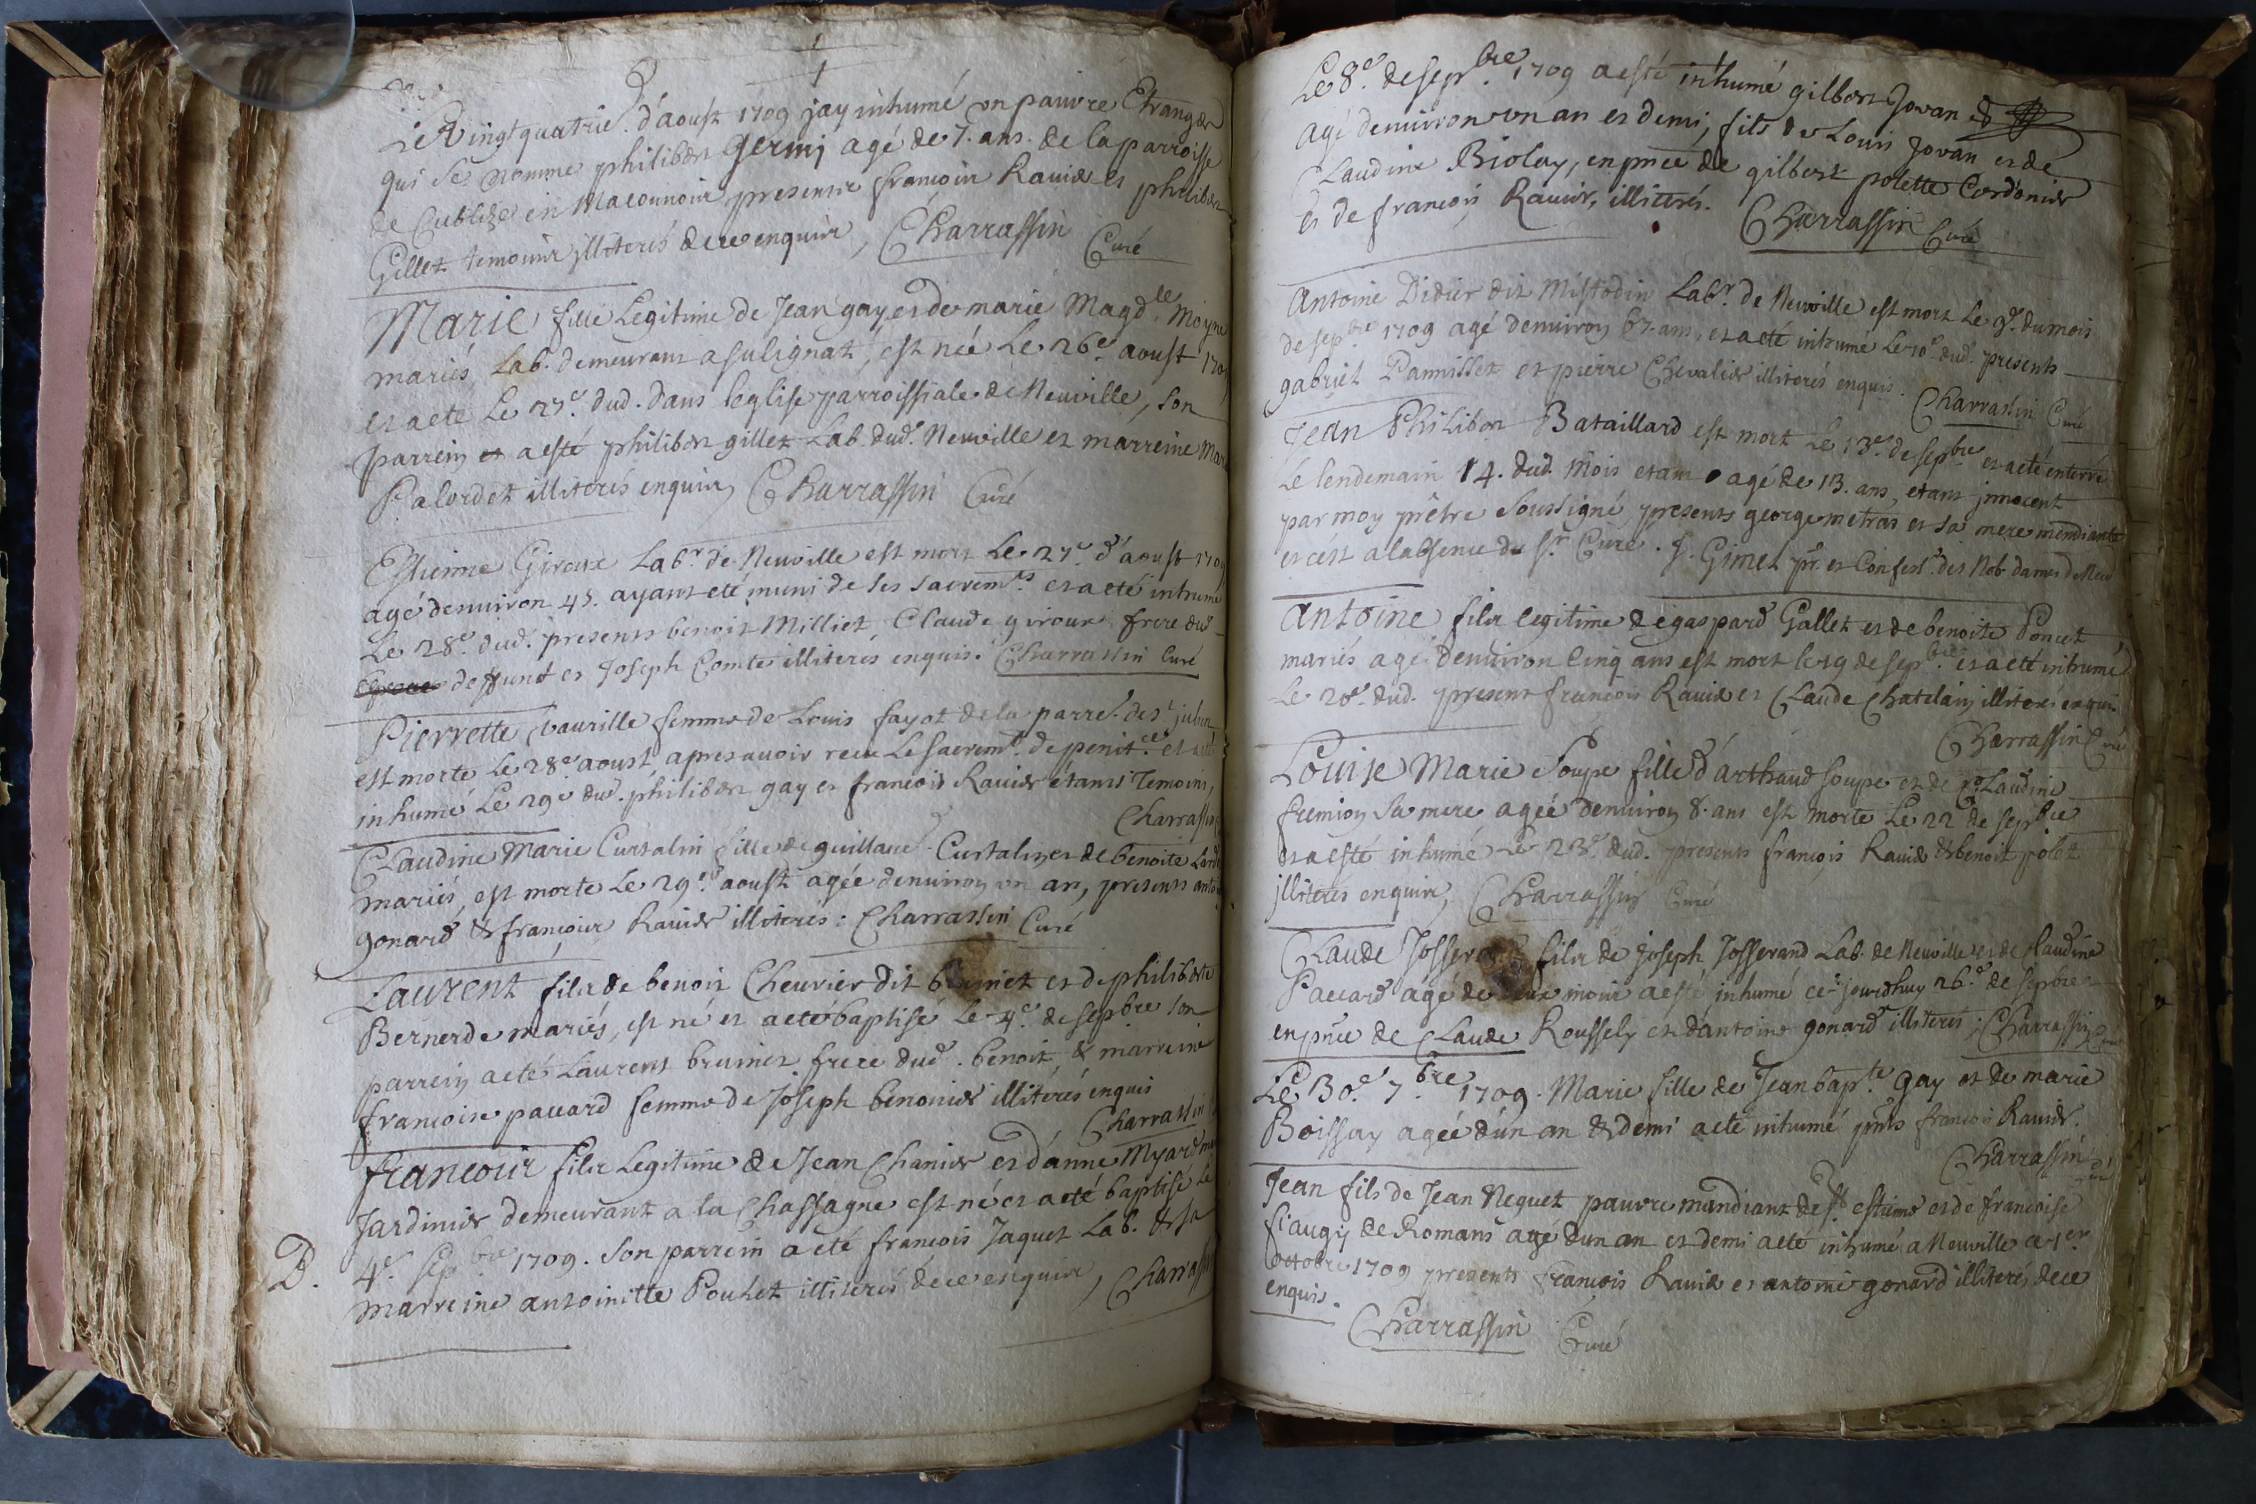 Le Vingt quatrie. d'aoust 1709 jay inhumé un pauvre Etranger
qui se nomme philibert Germi agé de 7. ans. de la parroisse
de Cublize en Maconnoir, presents francoir Ravier et philibert
Gillet temoins illiterés de ce enquir, Charrassin Curé
Marie, fille Legitime de Jean gay et de marie Magd.le Moyne
mariés, Lab. demeurant a sulignat, est née Le 26.e aoust 170
et a eté Le 27.e dud. dans l'eglise parroissiale de Neuville, son
parrein et a esté philibert gillet Lab. dud. Neuville et marreine Mar
Palordet illiterés enquir, Charrassin Curé
Estienne Giroux Lab.r de Neuville est mort Le 27.e d'aoust 1709
agé d'environ 45. ayant eté muni de ses sacrem.ts et a eté inhumé
Le 28.e dud. presents benoit Milliet, Claude giroux frere dud
deffunct et Joseph Comte illiterés enquis. Charrassin Curé
Pierrette vaurille femme de Louis fayot de la parre. de s.t julien
est morte Le 28.e aoust, apres avoir receu Le sacrem.t de penit.ce et a eté
inhumé Le 29.e dud. philibert gay et francois Ravier étants Temoins,
Charrassin
Claudine Marie Curtalin fille de guillaue Curtalin, et de benoite Lard
mariés, est morte Le 29.e aoust agée d'environ un an, presents anto
gonard & francoir Ravier illiterés: Charrassin Curé
Laurent fils de benoit Chevrier dit brunet et de philiberte
Bernerde mariés, est né et a eté baptisé Le 4.e de sepbre son
parrein a eté Laurent brunet frere dud. benoit, & marreine
francoise pauard femme de Joseph benonier illiterés enquis
Charrassin
francoir fils Legitime de Jean Chanier et d'anne Myard ma
Jardinier demeurant a la Chassagne est né et a eté baptisé Le
D. 4.e sepbre 1709. son parrein a eté francois Jaquet Lab. & sa
marreine antoinitte Pouhet illiterés de ce enquir, Charrass
Le 8.e de sepbre 1709 a esté inhumé gilbert Jovan &
agé d'environ un an et demi, fils de Louis Jovan et de
Claudine Biolay, en pnce de gilbert polette Cordonier
et de francois Ravier, illiterés. Charrassin Curé
Antoine Didier dit Mistodin Lab.r de Neuville est mort Le 9.e du mois
de sepbre 1709 agé d'environ 67. ans, et a eté inhumé Le 10.e dud. presents
gabriel Pannisset et pierre Chevalier illiterés enquis.
Charrassin Curé
Jean Philibert Bataillard est mort Le 13.e de sepbre et a eté enterré
Le lendemain 14. dud. mois etant agé de 13. ans, etant jnnocent
par moy prêtre soussigné, presents george metras et sa mere mendiante
et cest a labsence du sr. Curé. J. Gimet ptr. et Confess.r des Nob. dames de Neu
Antoine fils legitime de gaspard Gallet et de benoite Poncet
mariés agé d'environ cinq ans est mort le 19 de sepbre et a eté inhumé
Le 20.e dud. present francois Ravier et Claude Chatelain illiterés enquis
Charrassin Curé
Louise Marie Soupe fille d'arthaud soupe et de Claudine
fremion sa mere agée d'environ 8. ans est morte Le 22 de sepbre
et a esté inhumé Le 23.e dud. presents francois Ravier & benoit polet
illiterés enquir, Charrassin Curé
Claude Josserand fils de joseph Josserand Lab. de Neuville et de Claudine
Paccard agé de deux moir a esté inhumé ce jourdhuy 26.e de sepbre
en pnce de Claude Roussely et d'antoine gonard illiterés; Charrassin Curé
Le 30.e 7.bre 1709. Marie fille de Jean bap.te Gay et de marie
Boissay agée d'un an & demi a eté inhumé pnts francois Ravier.
Charrassin Curé
Jean fils de Jean Nequet pauvre mandiant de st. estiene et de francoise
fiaugy de Romans agé d'un an et demi a eté inhumé a Neuville ce 1.er
octobre 1709 presents francois Ravier et antoine gonard illiterés de ce
enquis.
Charrassin Curé